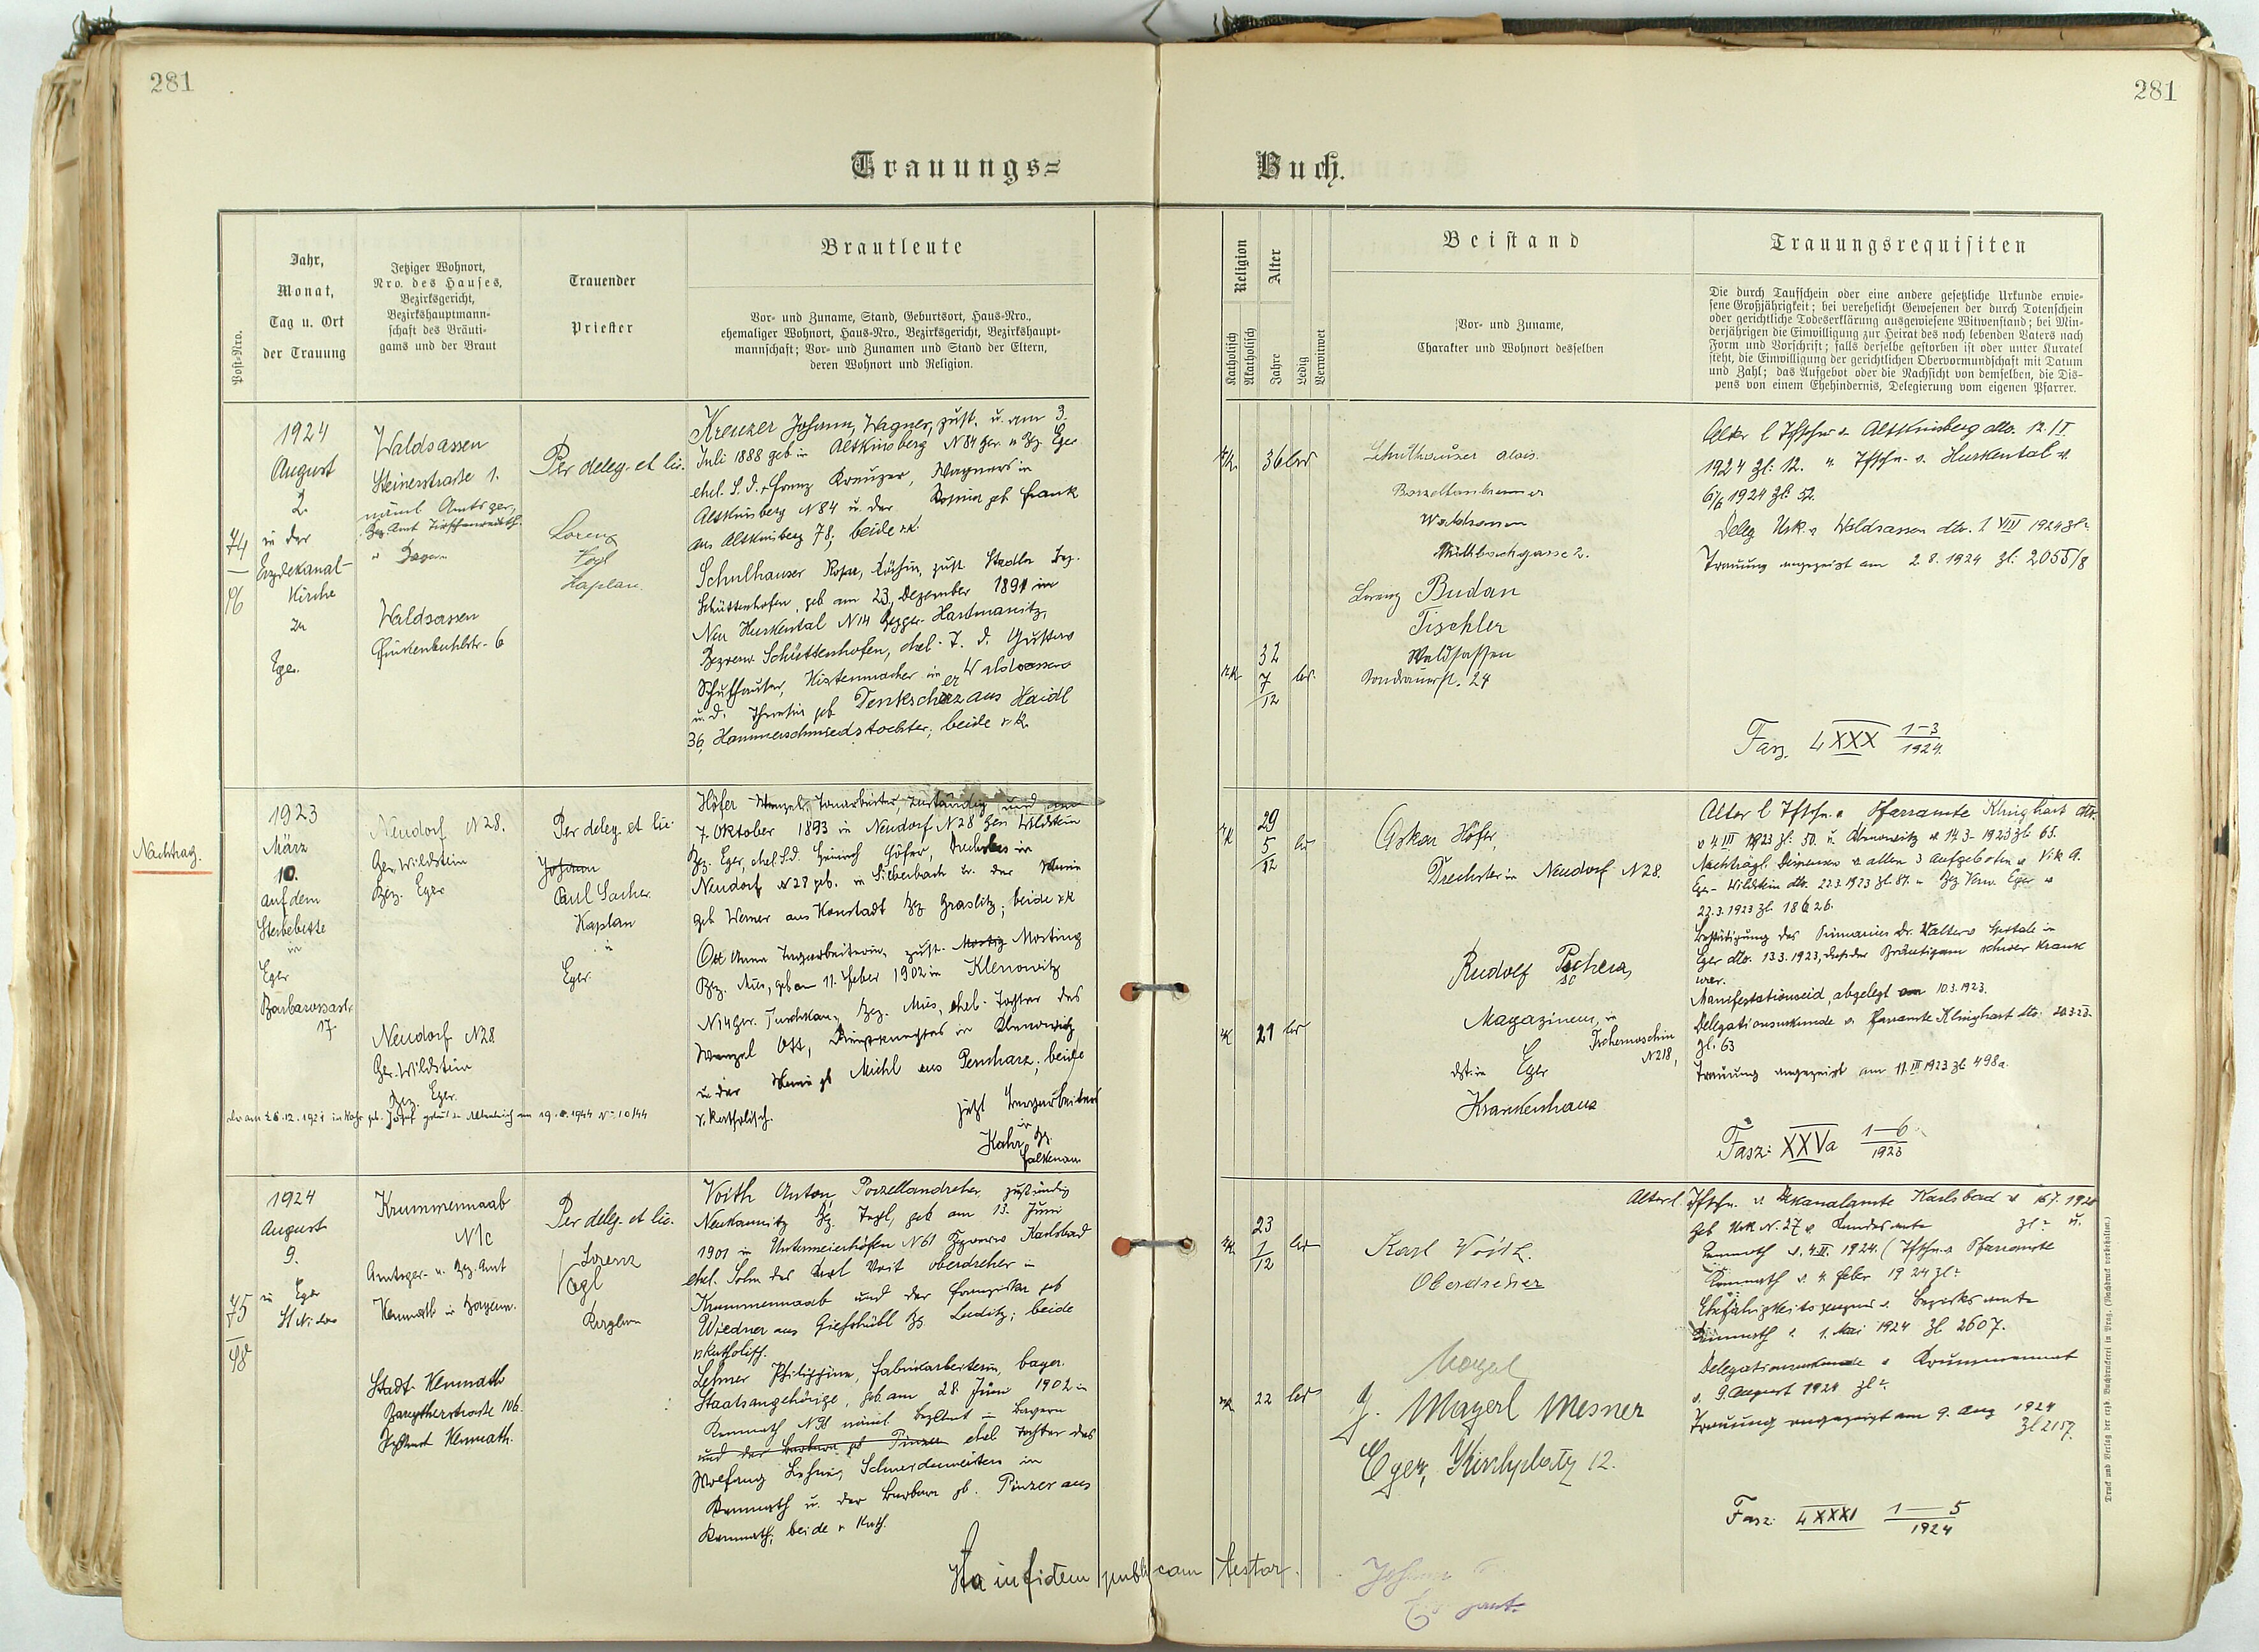 281
281
Trauungs=
Buch.
Post-Nro.
Jahr,
Monat,
Tag u. Ort
der Trauung
Jetziger Wohnort,
Nro. des Hauses,
Bezirksgericht,
Bezirkshauptmann-
schaft des Bräuti-
gams und der Braut
Trauender
Priester
Brautleute
Vor- und Zuname, Stand, Geburtsort, Haus-Nro.,
ehemaliger Wohnort, Haus-Nro., Bezirksgericht, Bezirkshaupt-
mannschaft; Vor- und Zunamen und Stand der Eltern,
deren Wohnort und Religion.
Religion
Katholisch
Akatholisch
Alter
Jahre
Ledig
Verwitwet
Beistand
Vor- und Zuname,
Charakter und Wohnort desselben
Trauungsrequisiten
Die durch Taufschein oder eine andere gesetzliche Urkunde erwie-
sene Großjährigkeit; bei verehelicht Gewesenen der durch Totenschein
oder gerichtliche Todeserklärung ausgewiesene Witwenstand; bei Min-
derjährigen die Einwilligung zur Heirat des noch lebenden Vaters nach
Form und Vorschrift; falls derselbe gestorben ist oder unter Kuratel
steht, die Einwilligung der gerichtlichen Obervormundschaft mit Datum
und Zahl; das Aufgebot oder die Nachsicht von demselben, die Dis-
pens von einem Ehehindernis, Delegierung vom eigenen Pfarrer.
74
96
1924
August
2.
in der
Erzdekanal-
Kirche
zu
Eger.
Waldsassen
Steinerstraße 1.
Bez. Amt Tirschenreuth
Bayern
Waldsassen
6
Per deleg. et lic.
Lorenz
Vogl
Kaplan.
Kreuzer Johann, Wagner, zust. u. am 3.
Juli 1888 geb in Altkinsberg N 84 Ger. u Bz. Eger
ehel. S. d. Franz Kreuzer, Wagners in
Altkinsberg N 84 u. der Rosina geb Frank
aus Altkinsberg 78; beide r.k.
Schulhauser Rosa, Köchin, zust. Stadln Bez.
Schüttenhofen, geb am 23. Dezember 1891 in
Neu Hurkental N 14 Hartmanitz,
Schüttenhofen, ehel. T. d. Gustav
Schulhauser, Kistenmacher in Waldsassen
u. d. geb Denkscherz aus Haidl
36, Hammerschmiedstochter; beide r. k.
rk. 36 led
rk 32 7/12 led.
Schulhauser Alois.
Porzellanbrenner
Waldsassen
Mühlbachgasse 2.
Lorenz Budan
Tischler
Waldsassen
24
Alter l Tfschn v. Altkinsberg dto. 12. IV
1924 Zl: 12. u. Tfschn. v. Hurkental v.
6/6 1924 Zl: 52.
Deleg Urk. v Waldsassen dto. 1 VIII 1924 Zl:
Trauung angezeigt am 2. 8. 1924 Zl: 2055/8
Fasz. LXXX 1-3
1924.
Nachtrag.
1923
März
10.
auf dem
Sterbebette
in
Eger
Barbarossastr.
17.
Neudorf N 28.
Ger. Wildstein
Bez. Eger
Neudorf N 28
Ger. Wildstein
Bez. Eger.
Per deleg. et lic.
Johann
Paul Sacher
Kaplan
in
Eger.
Höfer Wenzel, Tonarbeiter, zuständig und am
7. Oktober 1893 in Neudorf N 28 Ger. Wildstein
Bz. Eger, ehel. S.d. Heinrich Höfer, Drechslers in
Neudorf N 28 geb. in Silberbach u. der Marie
geb Werner aus Konstadt Bz Graslitz; beide rk
Ott Anna zust. Mostig Mosting
Bez. Mies, geb am 11. Feber 1902 in Klenowitz
N 14 Ger. Tuschkau, Bez. Mies, ehel. Tochter des
Wenzel Ott, in Klenowitz
u der Marie gb Michl aus Pernharz; beide
r. katholisch.
in
Kahr, Bz.
Falkenau
rk 29 5/12 led
rk 21 led
Oskar Höfer,
Drechsler in Neudorf N 28.
Rudolf Pechera,
Magazineur, in
Tschernoschin
N 218,
dzt. in Eger
Krankenhaus
Alter l Tfschn. v Pfarramte Klinghart dto.
v 4 III 1923 Zl. 50. u. Klenowitz v. 14.3. 1923 Zl 65.
Nachträgl. Dispensen v. allen 3 Aufgeboten v. Vik A.
Eger-Wildstein dto. 22.3.1923 Zl. 87. u Bez Verw. Eger v
22.3.1923 Zl. 18626.
Bestätigung des Primarius Dr. Walters in
Eger dto. 13.3.1923, daß der Bräutigam schwer krank
war.
Manifestationseid, abgelegt am 10.3.1923.
Delegationsurkunde v. Pfarramte Klinghart dto: 20.3.23.
Zl. 63
Trauung angezeigt am 11. III 1923 Zl 498a.
Fasz: XXVa 1-6
1923
75
98
1924
August
9.
in Eger
St Niclas
Krummennaab
N 1c
Amtsger. u. Bz. Amt
Kemnath in Bayern.
Stadt-Kemnath
Bayreutherstraße 106.
Kemnath.
Per deleg. et lic.
Lorenz
Vogl
Kaplan
Voith Anton, Porzellandreher, zuständig
Neukaunitz Bz. Tepl, geb am 13. Juni
1901 in Untermeierhöfen N 61 Karlsbad
ehel. Sohn des Karl Voit Oberdreher in
Krummennaab und der Franziska geb
Wiedner aus Gießhübl Bz. Luditz; beide
r katholisch.
Lehner Philippine, Fabriksarbeiterin, bayer.
Staatsangehörige, geb. am 28. Juni 1902 in
Kemnath in Bayern
und der Barbara gb Pinzer ehel Tochter des
Wolfgang Lehner, Schneidermeisters in
Kemnath u. der Barbara gb. Pinzer aus
Kemnath; beide r. kath.
rk. 23 1/12 led
rk 22 led
Karl Voith.
Oberdreher
Mayerl
J. Mayerl Mesner
Eger, Kirchplatz 12.
Alter l. Tfschn. v. Dekanalamte Karlsbad v 16.7. 1920
Kemnath v. 4. II. 1924. (Tfschn. v Pfarramte
Kemnath v. 4. Feber 1924 Zl:
Ehefähigkeitszeugnis v. Bezirksamte
Kemnath v. 1. Mai 1924 Zl 2607.
Delegationsurkunde v Krummennaab
v. 9. August 1924 Zl:
Trauung angezeigt am 9. Aug 1924
Zl 2157.
Fasz: LXXXI 1-5
1924
Ita in fidem publicam testor.
Johann
Druck und Verlag der erzb. Buchdruckerei in Prag. (Nachdruck vorbehalten.)